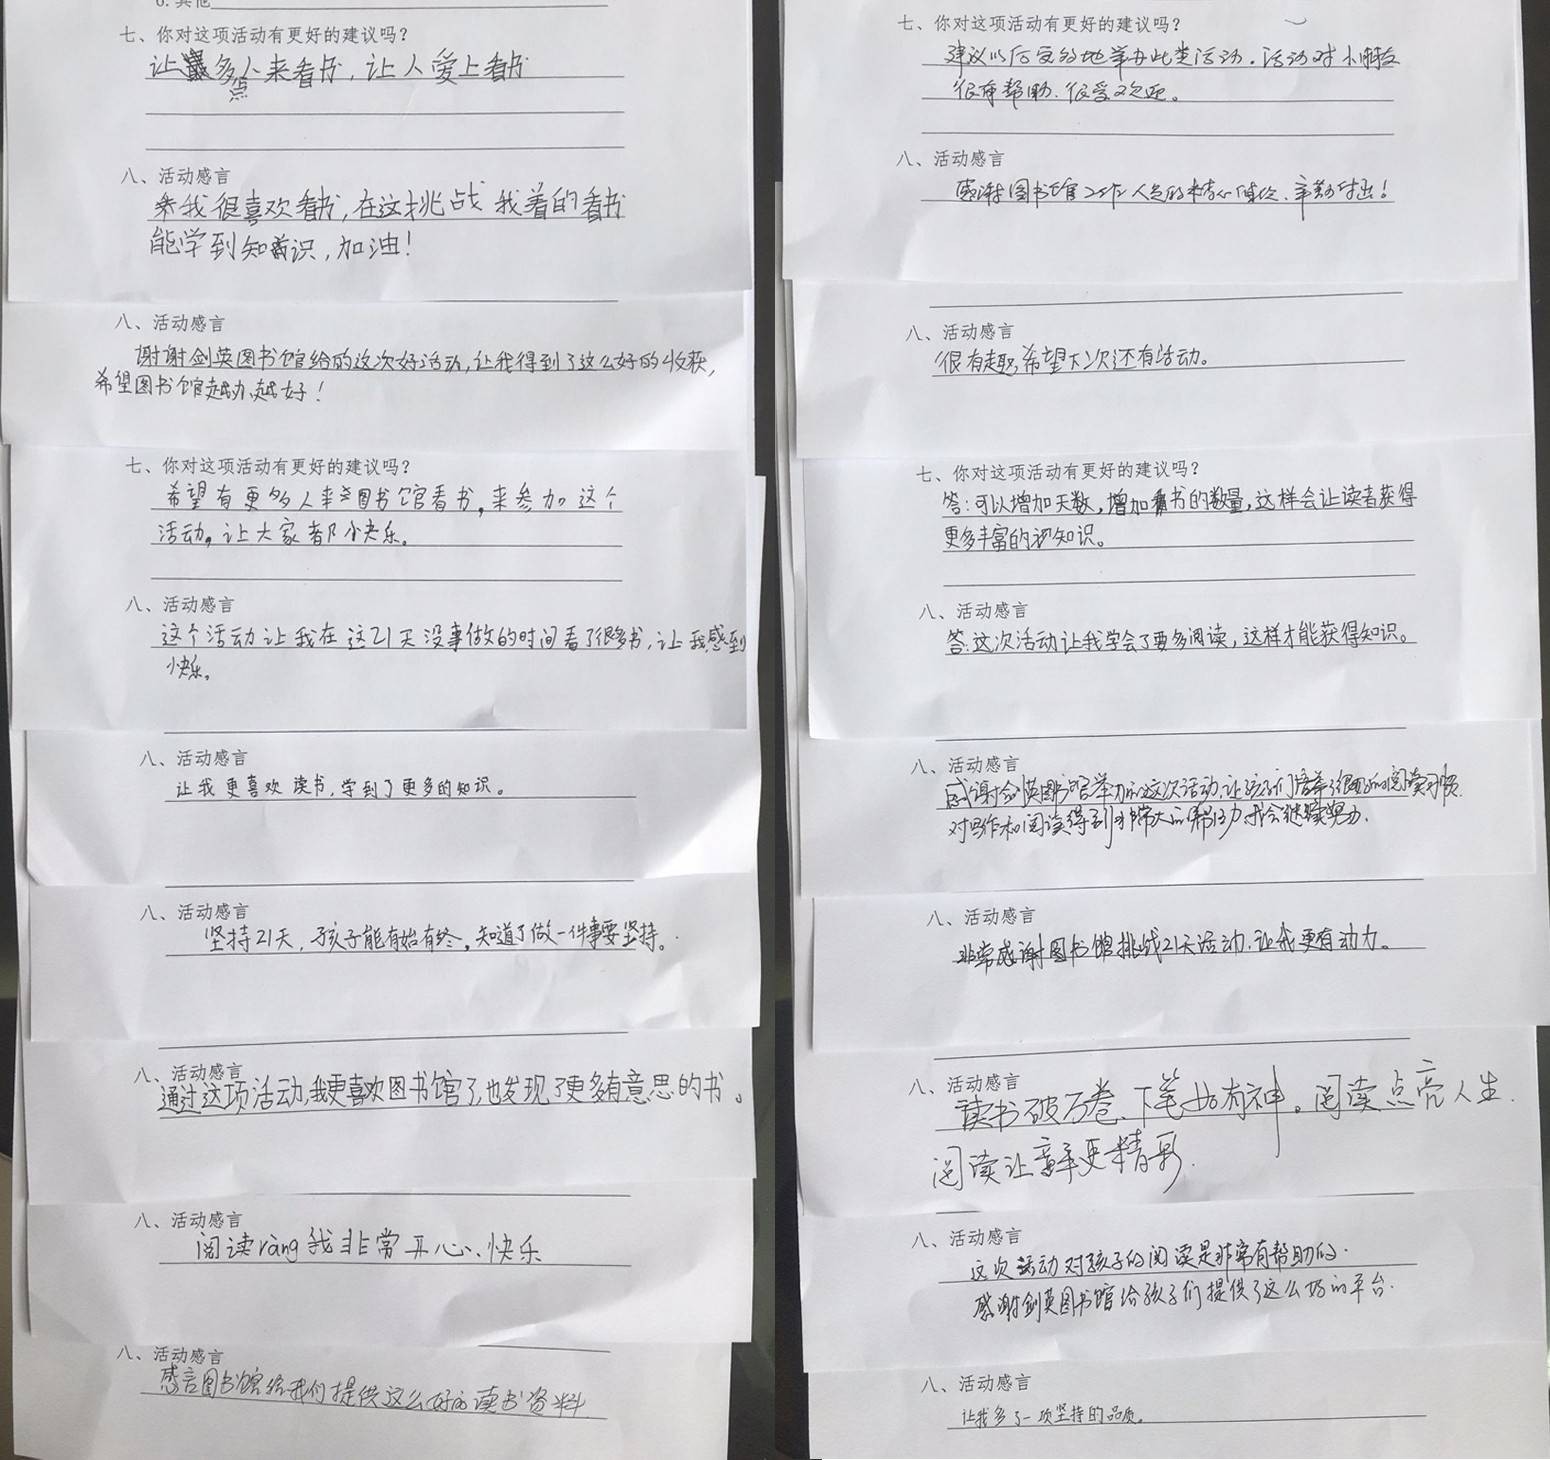 6. 其他
七、你对这项活动有更好的建议吗?
让多点人来看书，让人爱上看书
八、活动感言
我很喜欢看书，在这挑战我着的看书
能学到知识，加油！
八、活动感言
谢谢剑英图书馆给的这次好活动，让我得到了这么好的收获，
希望图书馆越办越好！
七、你对这项活动有更好的建议吗?
希望有更多人来图书馆看书，来参加这个
活动，让大家都快乐。
八、活动感言
这个活动让我在这21天没事做的时间看了很多书，让我感到
快乐。
八、活动感言
让我更喜欢读书，学到了更多的知识。
八、活动感言
坚持21天，孩子能有始有终，知道了做一件事要坚持。
八、活动感言
通过这项活动，我更喜欢图书馆了，也发现了更多有意思的书。
八、活动感言
阅读ràng我非常开心、快乐
八、活动感言
感言图书馆给我们提供这么好的读书资料
七、你对这项活动有更好的建议吗?
建议以后定的地举办此类活动，活动对小朋友
很有帮助，很受欢迎。
八、活动感言
感谢图书馆工作人员的精心，辛勤付出！
八、活动感言
很有趣，希望下次还有活动。
七、你对这项活动有更好的建议吗?
答：可以增加天数，增加书的数量，这样会让读者获得
更多丰富的知识。
八、活动感言
答：这次活动让我学会了要多阅读，这样才能获得知识。
八、活动感言
感谢剑英图书馆举办的这次活动，让孩子们培养了很好的阅读习惯，
对写作和阅读得到非常大的帮助，我会继续努力.
八、活动感言
非常感谢图书馆挑战21天活动，让我更有动力。
八、活动感言
读书破万卷，下笔如有神。阅读点亮人生，
阅读让童年更精彩.
八、活动感言
这次活动对孩子的阅读是非常有帮助的.
感谢剑英图书馆给孩子们提供了这么好的平台.
八、活动感言
让我多了一项坚持的品质。